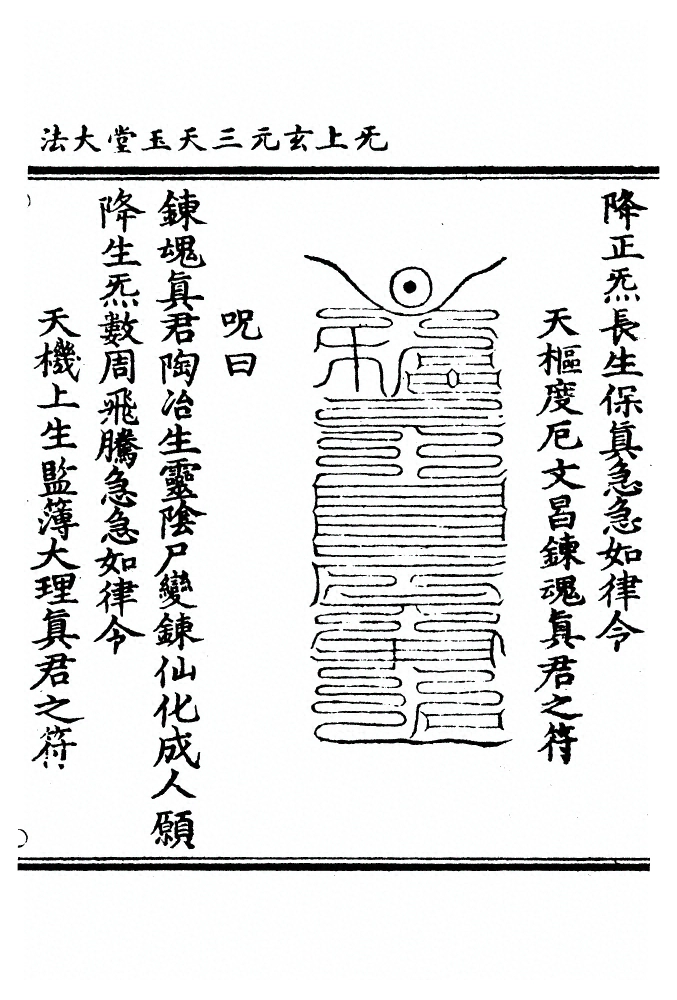 无上玄元三天玉堂大法
降正炁長生保眞急急如律令
天樞度厄文昌鍊魂眞君之符
呪曰
鍊魂眞君陶冶生靈陰尸變鍊仙化成人願
降生炁數周飛騰急急如律令
天機上生監簿大理眞君之符